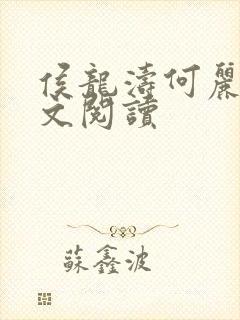 侯龍濤何麗
文閱讀
蘇鑫波